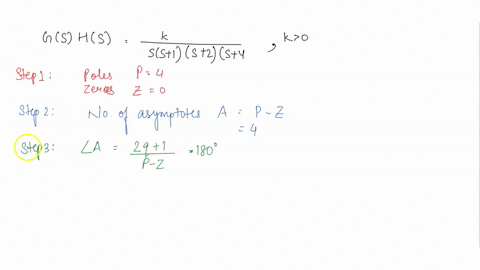 G(S) H(S) = K / S(S+1)(S+2)(S+4 , K>0
Step 1: Poles P=4
Zeros Z=0
Step 2: No. of asymptotes A = P-Z
= 4
Step 3: ∠A = 2q+1 / P-Z * 180°